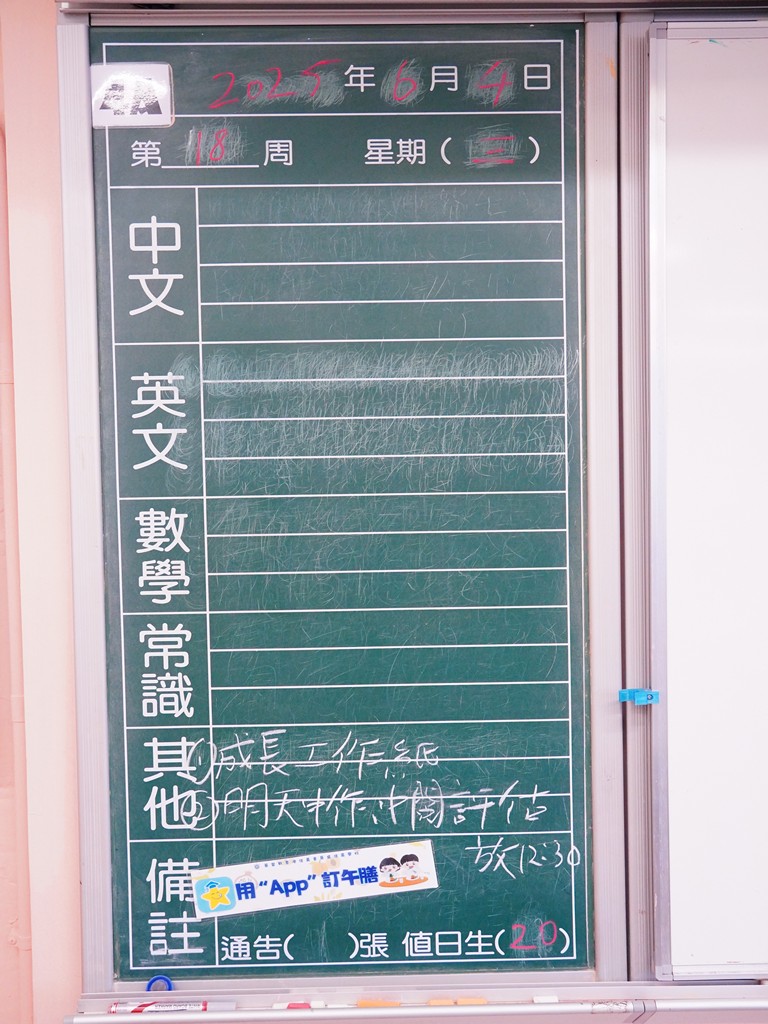 2025年6月4日
第18周 星期(三)
中文
英文
數學
常識
其他
①成長工作紙
②明天中作,中閱評估
放12:30
備註
用“App”訂午膳
通告( )張 值日生(20)